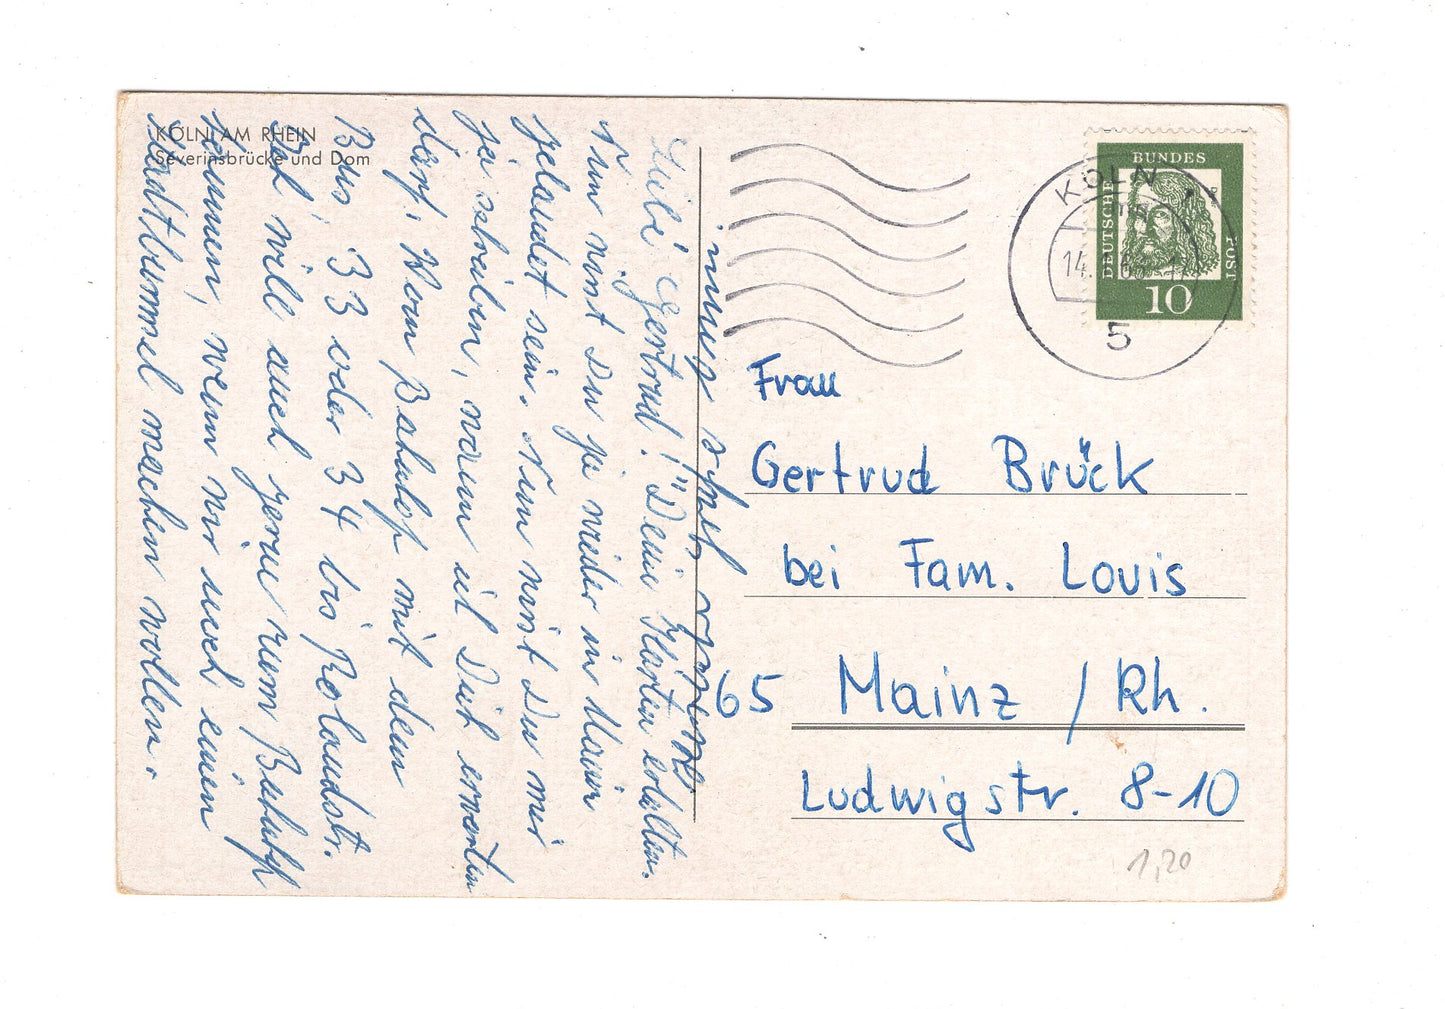 KÖLN AM RHEIN
Severinsbrücke und Dom
Liebe Gertrud! Dein Karten erhalten.
Nun wirst Du ja wieder in Mainz
gelandet sein. Nun wirst Du mir
ja schreiben, wann ich Dich erwarten
darf. Vom Bahnhof mit dem
Bus 33 oder 34 bis Rolandstr.
Ich will auch gerne zum Bahnhof
kommen, wenn wir noch einen
Stadtbummel machen wollen.
DEUTSCHE
BUNDES
POST
10
KÖLN
14.
5
Frau
Gertrud Brück
bei Fam. Louis
65 Mainz /Rh.
Ludwigstr. 8-10
1,20